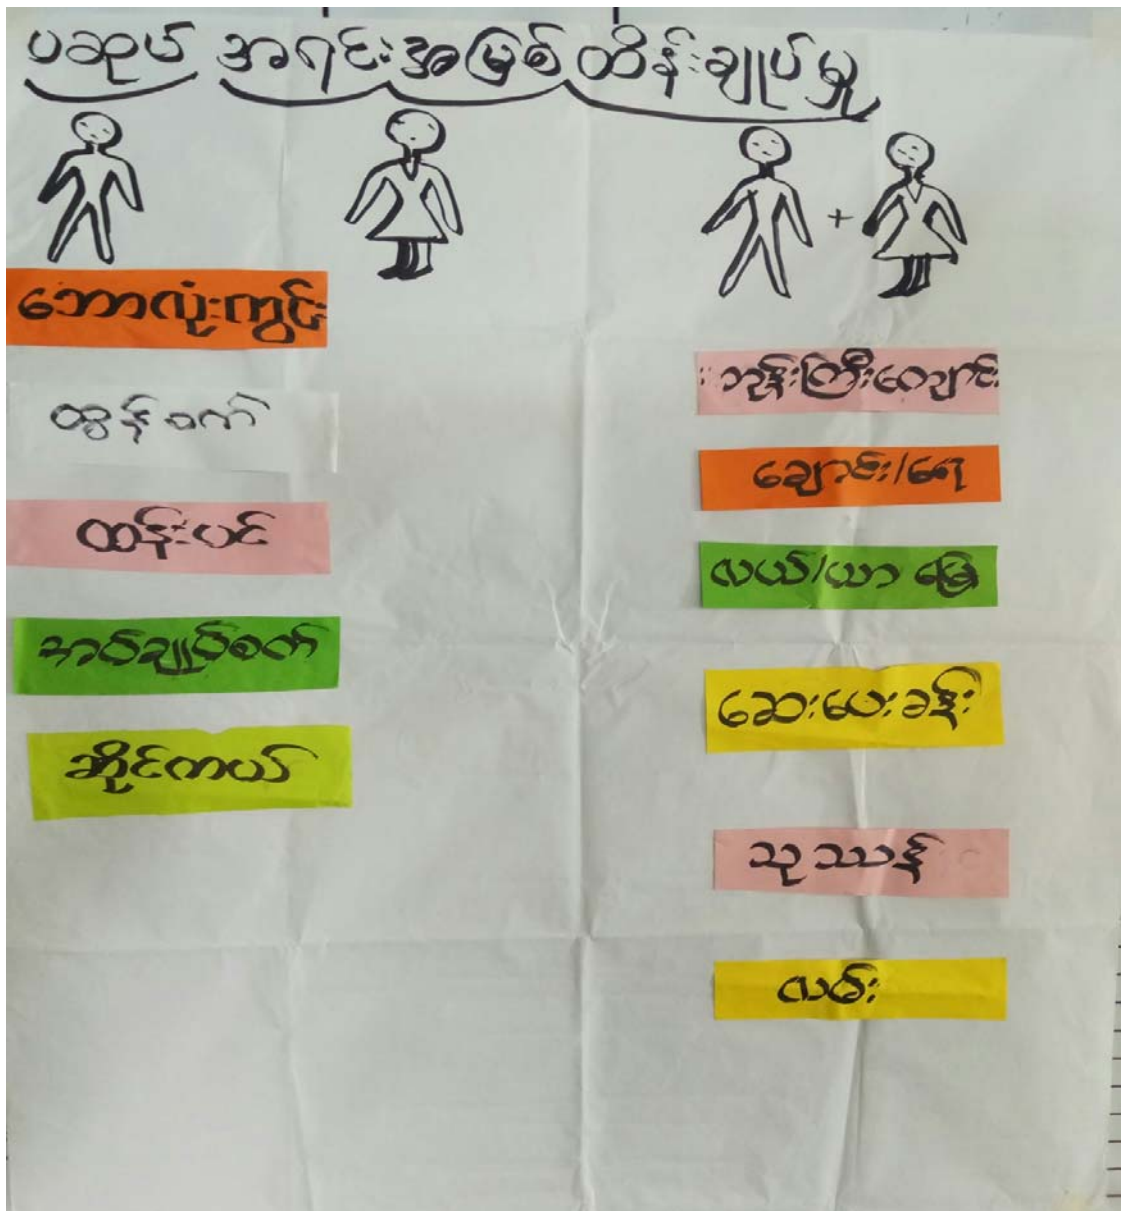 ပဆုပ် အရင်းအမြစ် ထိန်းချုပ်မှု
ဘောလုံးကွင်း
ထွန်စက်
ထန်းပင်
အပ်ချုပ်စက်
ဆိုင်ကယ်
+
ဘုန်းကြီးကျောင်း
ချောင်း/ရေ
လယ်/ယာ မြေ
ဆေးပေးခန်း
သုဿန်
လမ်း